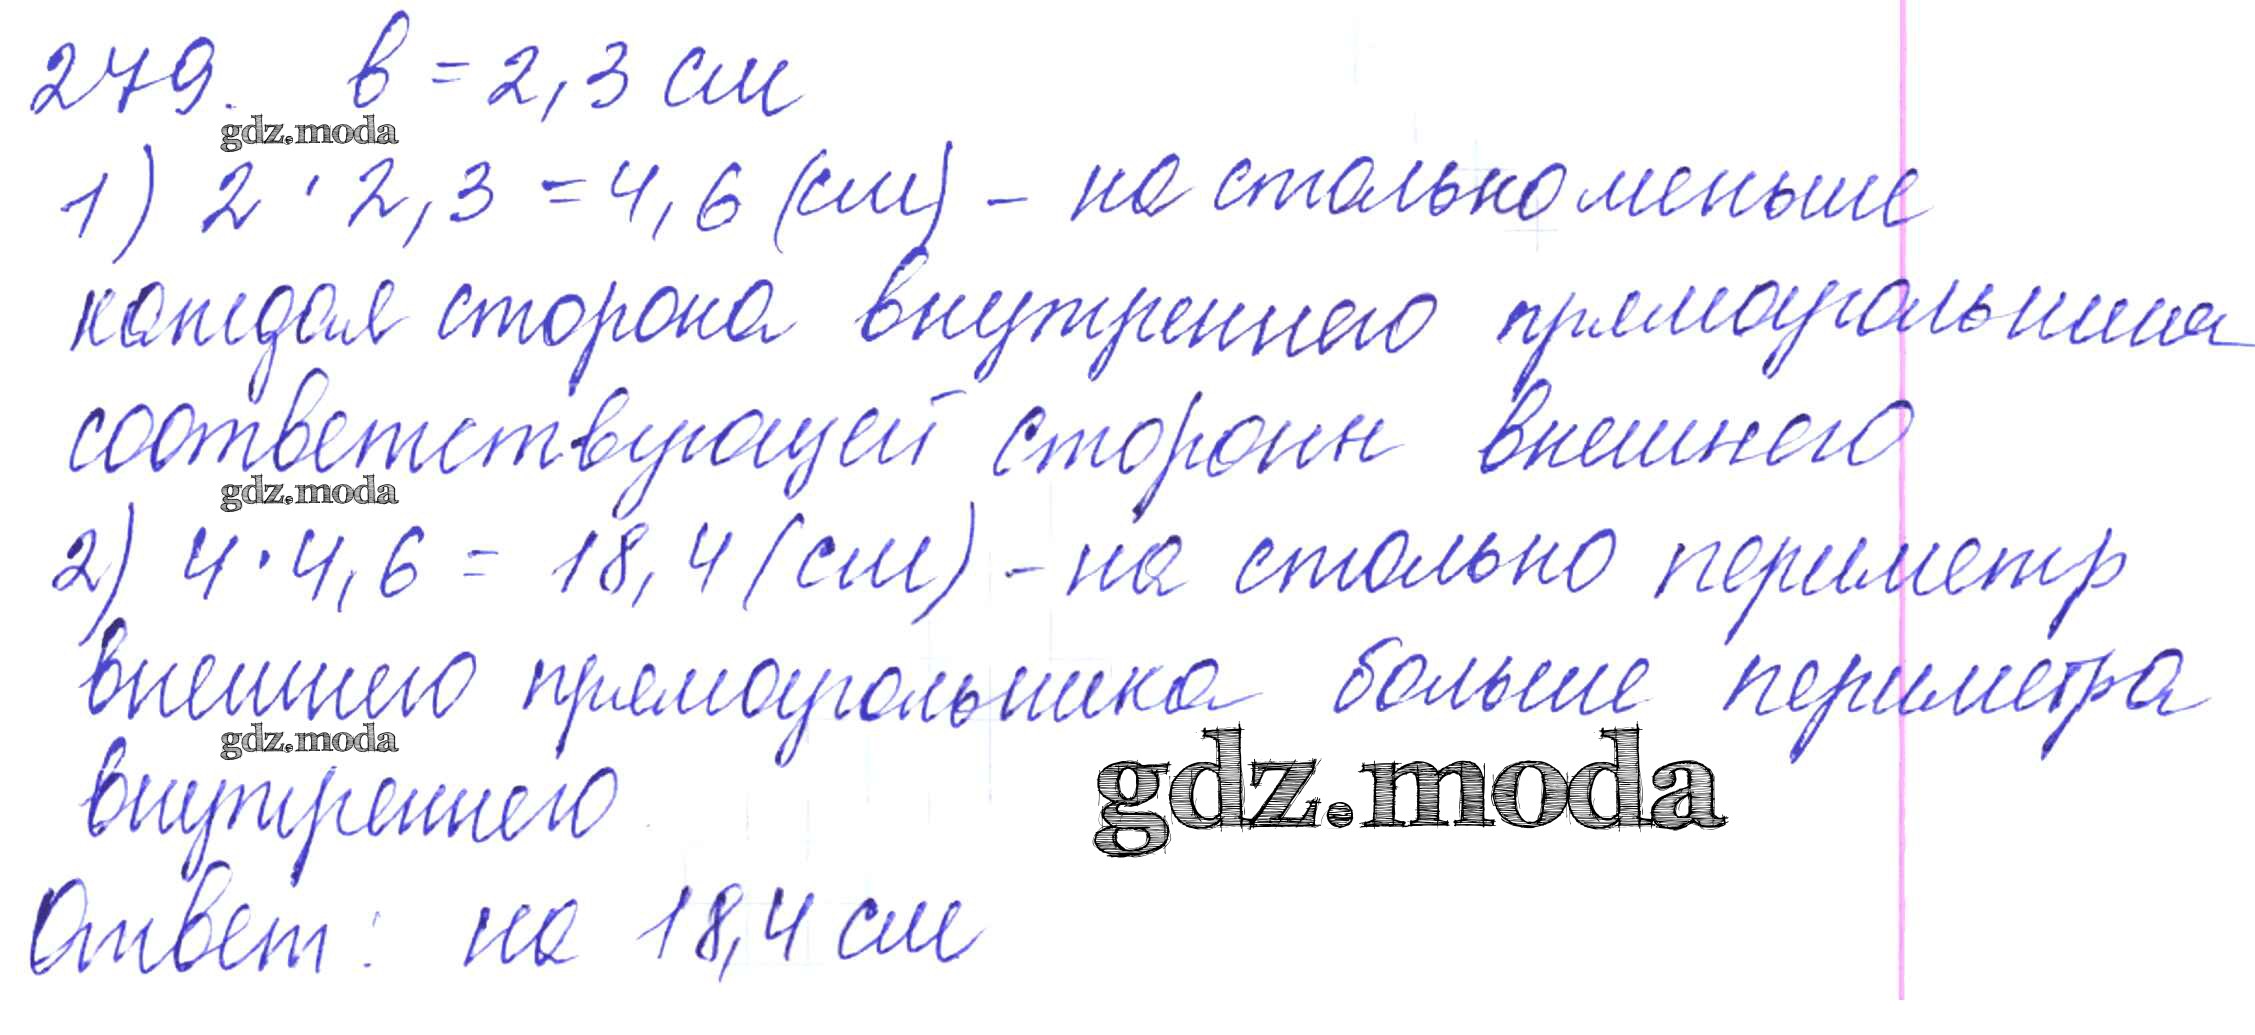 279. в = 2,3 см
gdz.moda
1) 2 · 2,3 = 4,6 (см) - на столько меньше
каждая сторона внутреннего прямоугольника
соответствующей сторон внешнего
gdz.moda
2) 4 · 4,6 = 18,4 (см) - на столько периметр
внешнего прямоугольника больше периметра
gdz.moda
gdz.moda
внутреннего
Ответ: на 18,4 см